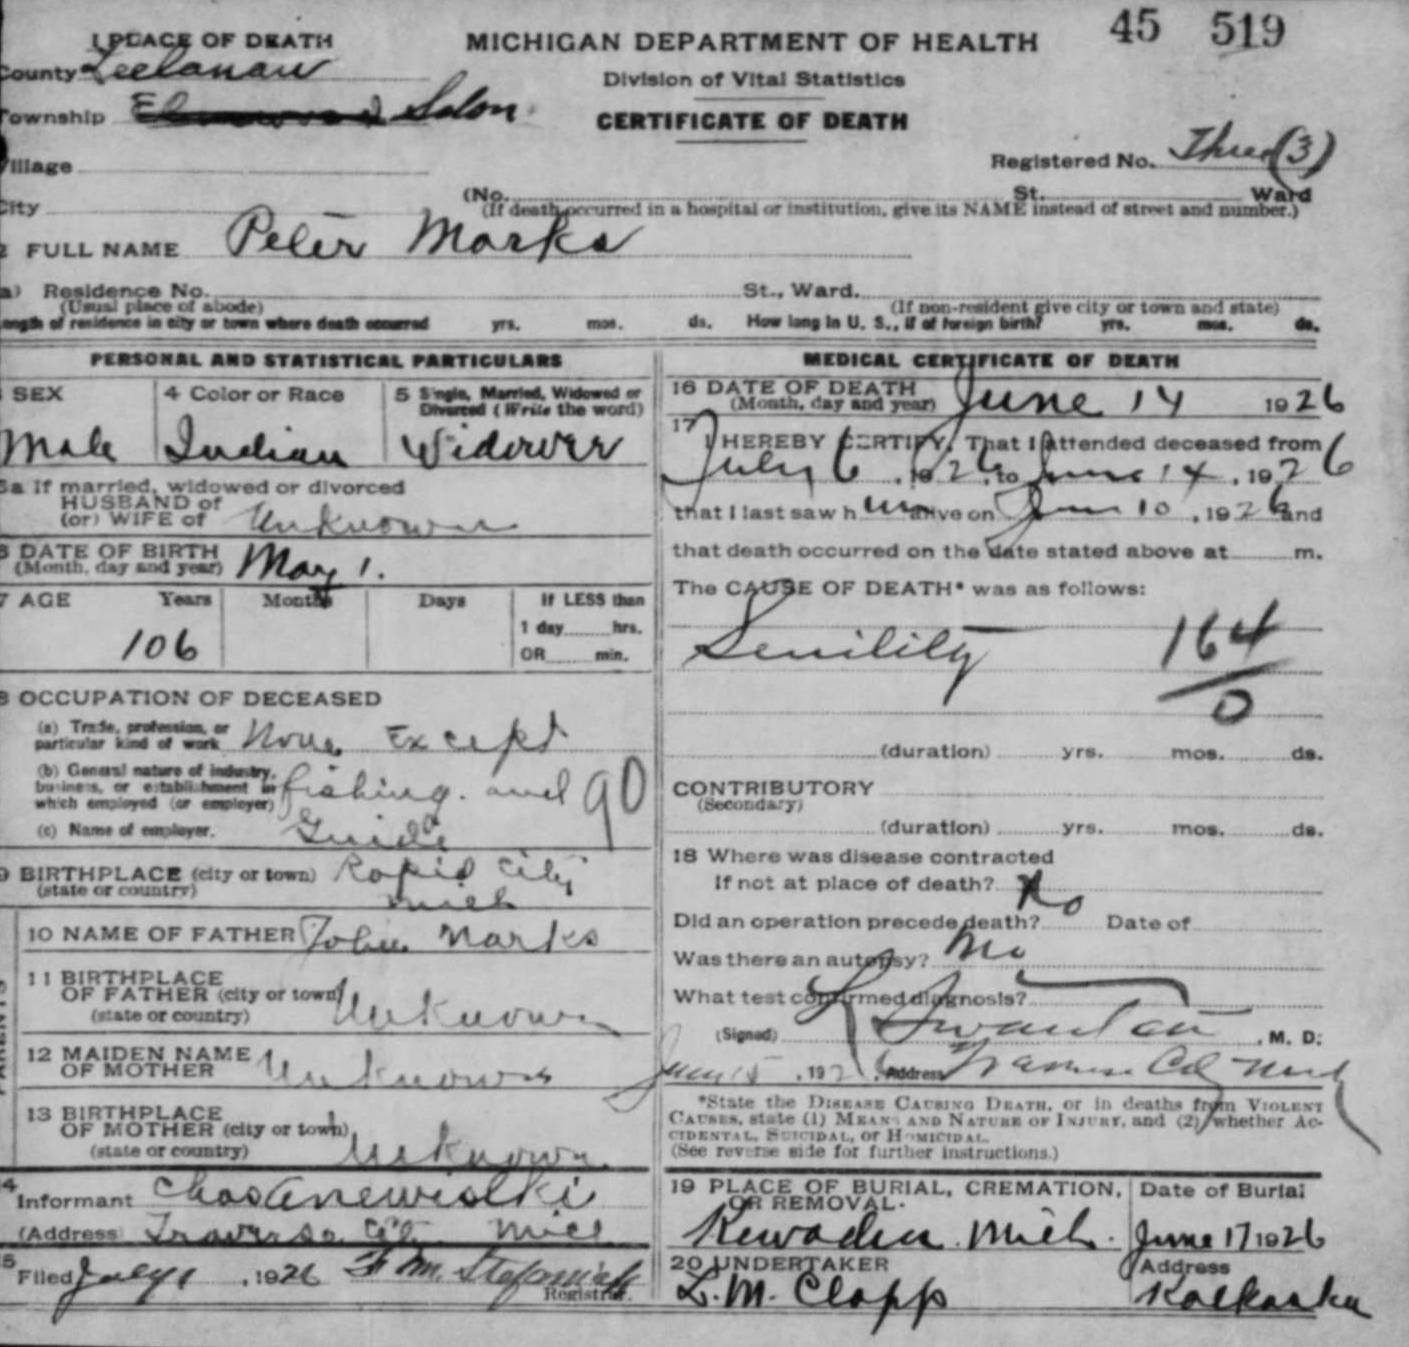 45 519
1 PLACE OF DEATH
MICHIGAN DEPARTMENT OF HEALTH
County Leelanau
Division of Vital Statistics
Township Elmwood Solon
CERTIFICATE OF DEATH
Village
Registered No. Three (3)
City
(No. St. Ward
(If death occurred in a hospital or institution, give its NAME instead of street and number.)
2 FULL NAME Peter Marks
a) Residence No. St., Ward.
(Usual place of abode) (If non-resident give city or town and state)
Length of residence in city or town where death occurred yrs. mos. ds. How long in U. S., if of foreign birth? yrs. mos. ds.
PERSONAL AND STATISTICAL PARTICULARS
SEX
Male
4 Color or Race
Indian
5 Single, Married, Widowed or
Divorced (Write the word)
Widower
5a If married, widowed or divorced
HUSBAND of
(or) WIFE of Unknown
6 DATE OF BIRTH
(Month, day and year) May 1.
7 AGE Years Months Days If LESS than
1 day hrs.
106
OR min.
8 OCCUPATION OF DECEASED
(a) Trade, profession, or
particular kind of work None Except
(b) General nature of industry,
business, or establishment in
which employed (or employer) fishing. and 90
(c) Name of employer. Guide
9 BIRTHPLACE (city or town) Rapid City
(state or country) Mich
PARENTS
10 NAME OF FATHER John Marks
11 BIRTHPLACE
OF FATHER (city or town)
(state or country) Unknown
12 MAIDEN NAME
OF MOTHER Unknown
13 BIRTHPLACE
OF MOTHER (city or town)
(state or country) Unknown
14
Informant Chas
(Address) Traverse City Mich
15
Filed July 1, 1926 F M.
Registrar.
MEDICAL CERTIFICATE OF DEATH
16 DATE OF DEATH
(Month, day and year) June 14 1926
17
I HEREBY CERTIFY, That I attended deceased from
July 6, 1926, to June 14, 1926
that I last saw h im alive on June 10, 1926 and
that death occurred on the date stated above at m.
The CAUSE OF DEATH* was as follows:
Senility 164
0
(duration) yrs. mos. ds.
CONTRIBUTORY
(Secondary)
(duration) yrs. mos. ds.
18 Where was disease contracted
If not at place of death?
Did an operation precede death? No Date of
Was there an autopsy? No
What test confirmed diagnosis?
(Signed) Swanton, M. D.
June 15, 1926, Address Traverse City Mich
*State the DISEASE CAUSING DEATH, or in deaths from VIOLENT
CAUSES, state (1) MEANS AND NATURE OF INJURY, and (2) whether AC-
CIDENTAL, SUICIDAL, or HOMICIDAL.
(See reverse side for further instructions.)
19 PLACE OF BURIAL, CREMATION,
OR REMOVAL.
Kewadin Mich.
Date of Burial
June 17 1926
20 UNDERTAKER
L. M. Clapp
Address
Kalkaska